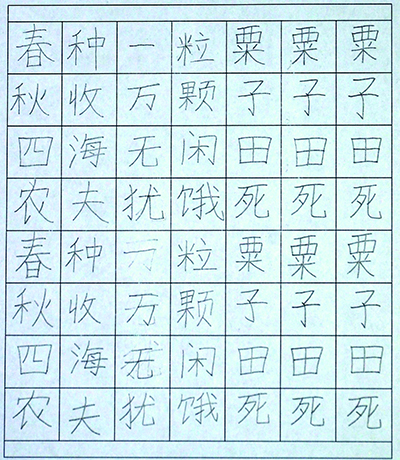 春种一粒粟粟粟
秋收万颗子子子
四海无闲田田田
农夫犹饿死死死
春种一粒粟粟粟
秋收万颗子子子
四海无闲田田田
农夫犹饿死死死